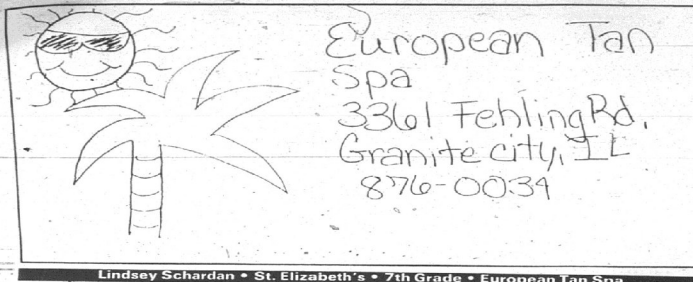 European Tan
Spa
3361 Fehling Rd,
Granite city, IL
876-0034
Lindsey Schardan • St. Elizabeth's • 7th Grade • European Tan Spa